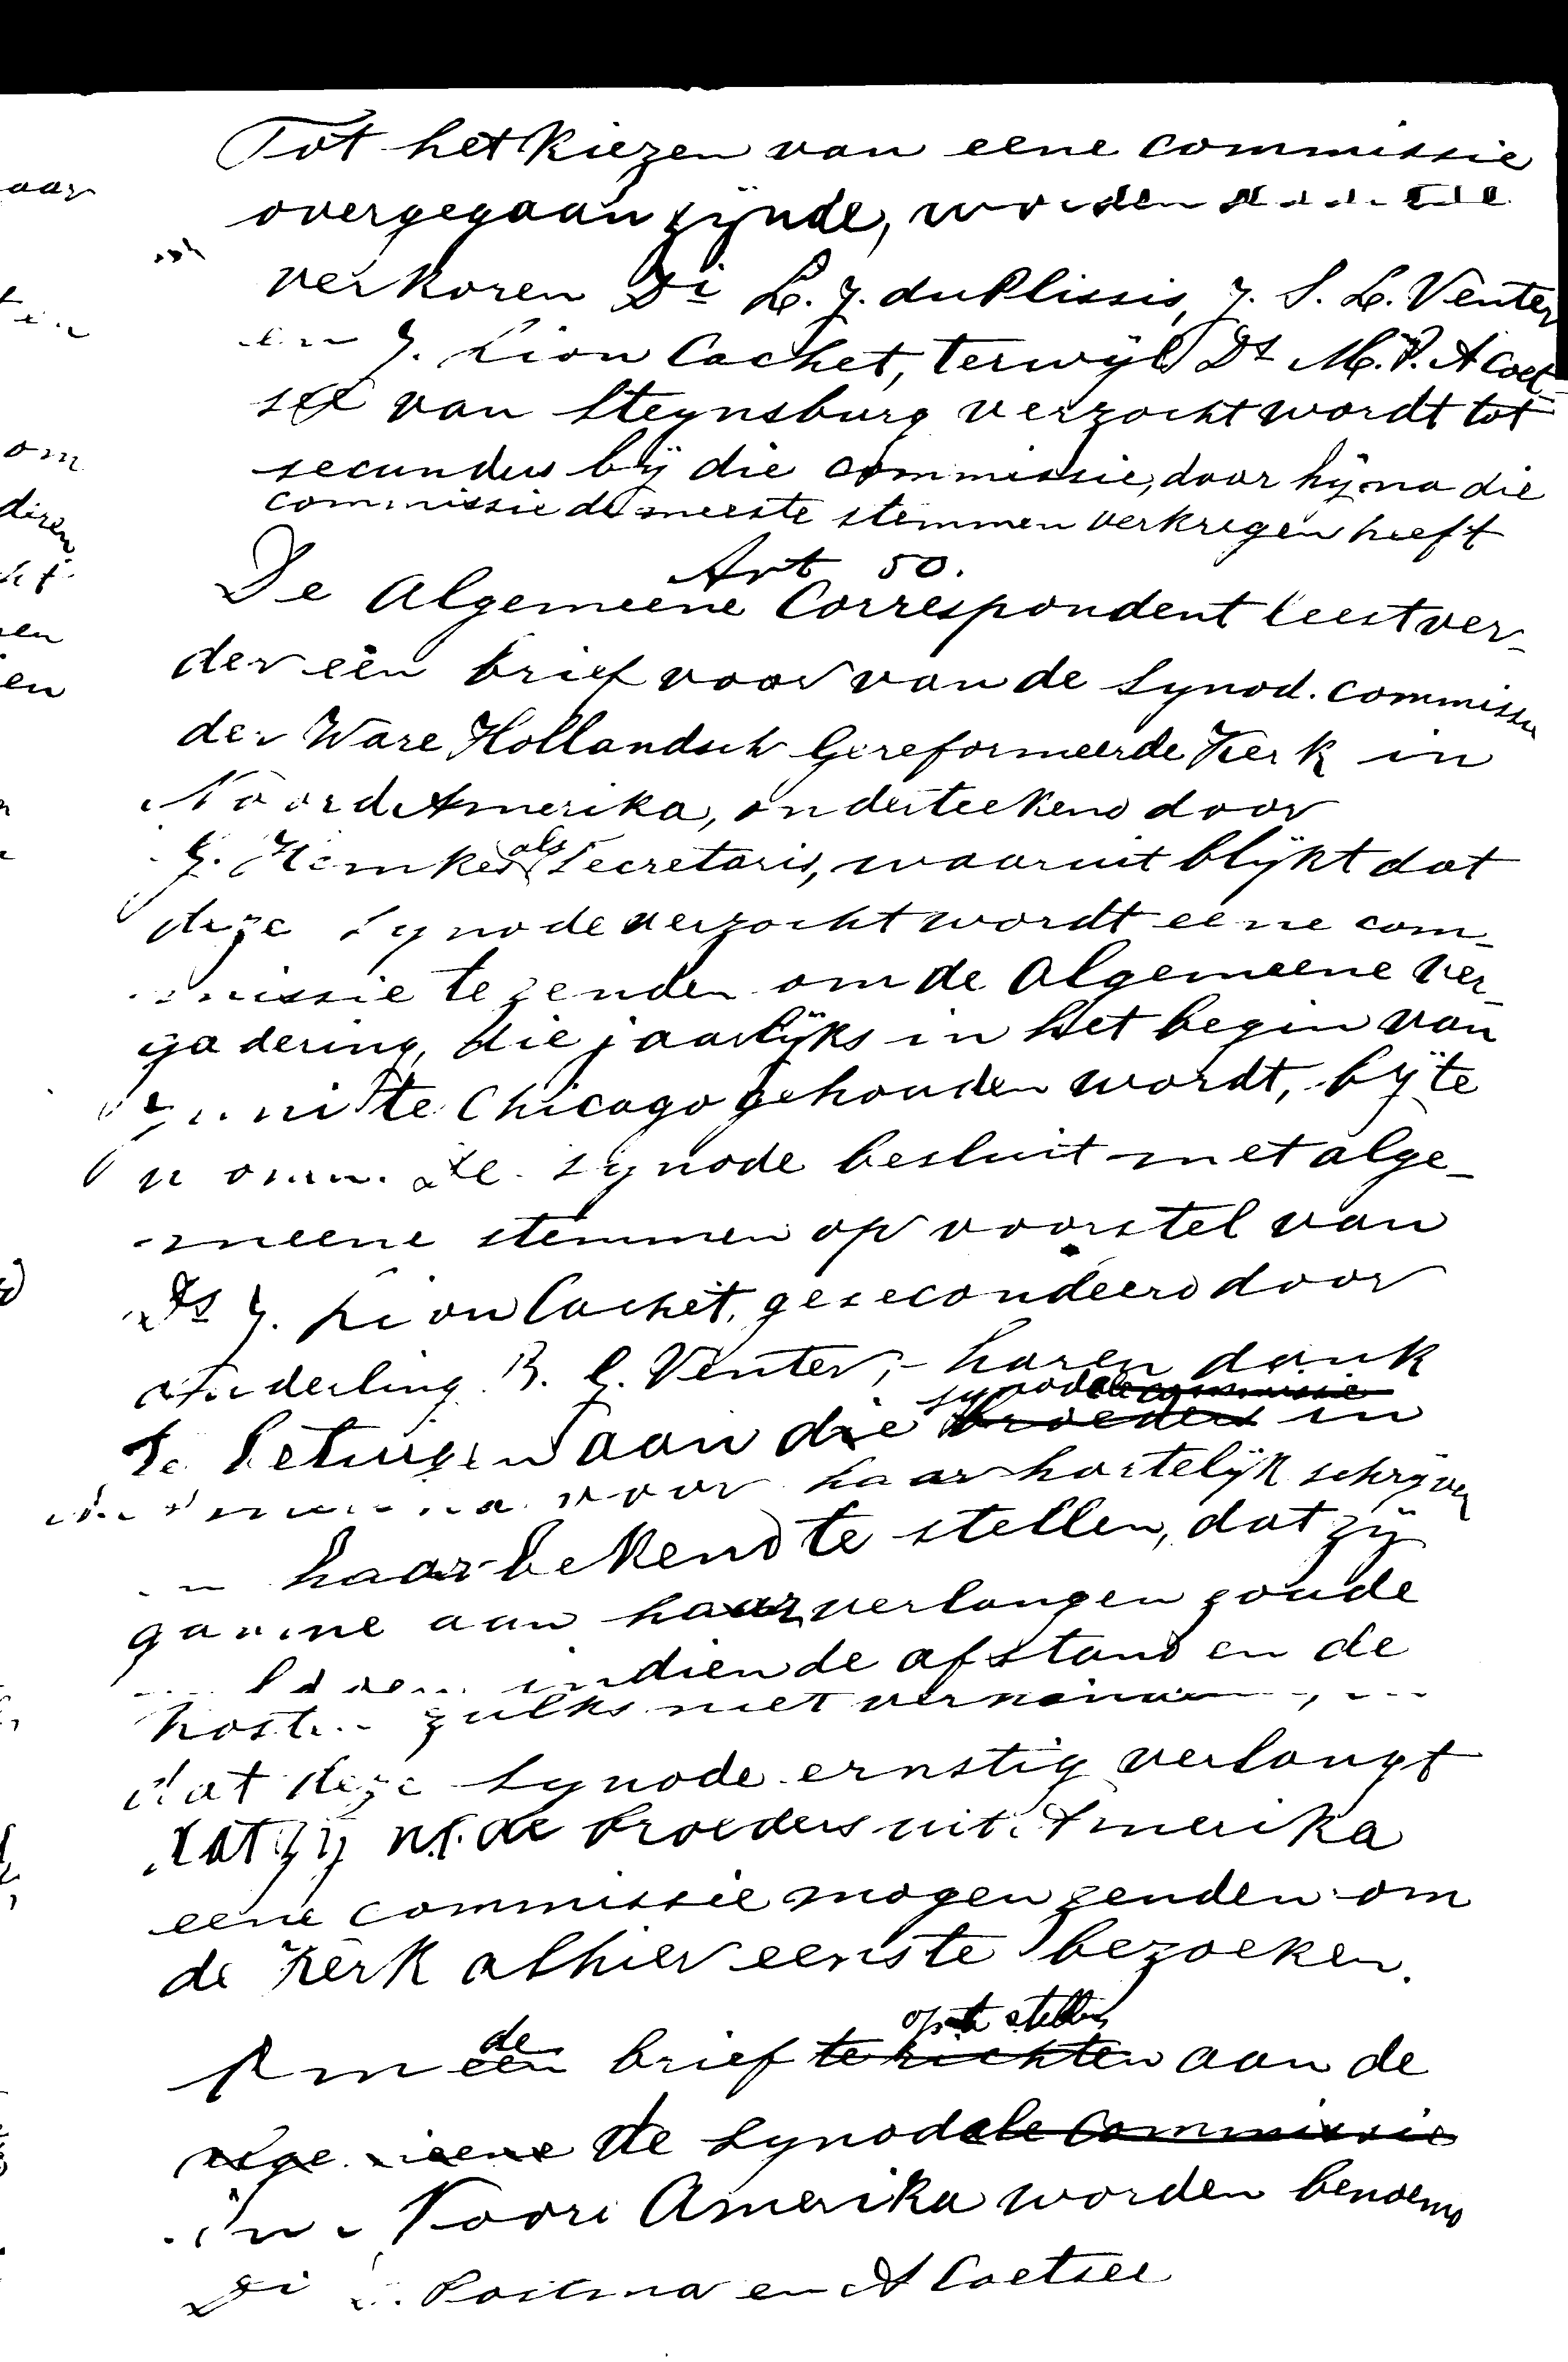 Tot het kiezen van eene commissie
overgegaan zijnde, worden daartoe
verkoren Di L. J. du Plissis, J. S. L. Venter
en J. Lion Cachet, terwijl Ds M. P. A Coet-
see van Steynsburg verzocht wordt tot
secundus bij die commissie, daar hij na die
commissie de meeste stemmen verkregen heeft
Art 50.
De Algemeene Correspondent leest ver-
der een brief voor van de Synod. commissie
der Ware Hollandsch Gereformeerde Kerk in
Noord Amerika, onderteekend door
J. Hemkes als Secretaris, waaruit blijkt dat
deze Synode verzocht wordt eene com-
missie te zenden om de Algemeene Ver-
gadering, die jaarlijks in het begin van
Juni te Chicago gehouden wordt, bij te
wonen. De Synode besluit met alge-
meene stemmen op voorstel van
Ds J. Lion Cachet, gesecondeerd door
Ouderling B. G. Venter, haren dank
te betuigen aan die synodale commissie broeders in
Amerika voor haar hartelijk schrijven
en haar bekend te stellen, dat zij
gaarne aan haar verlangen zoude
voldoen indien de afstand en de
kosten zulks niet verhinderen, en
dat deze Synode ernstig verlangt
dat zij nl. de broeders uit Amerika
eene commissie mogen zenden om
de Kerk alhier eens te bezoeken.
Om een de brief te richten op te stellen aan de
Algemeene de Synodale Commissie
in Noord Amerika worden benoemd
Di Postma en A Coetsee